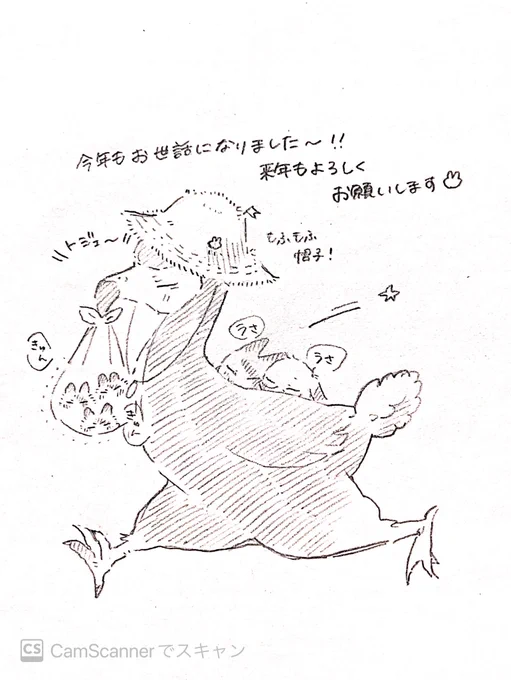 今年もお世話になりました〜!!
来年もよろしく
お願いします
トジェ〜
もふもふ
帽子!
うさ
うさ
きゅん
きゅん
CS CamScannerでスキャン